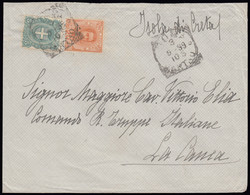 (Isola di Creta)
99
Signor Maggiore Cav. Vittorio Elia
Comando R. Truppe Italiane
La Canea